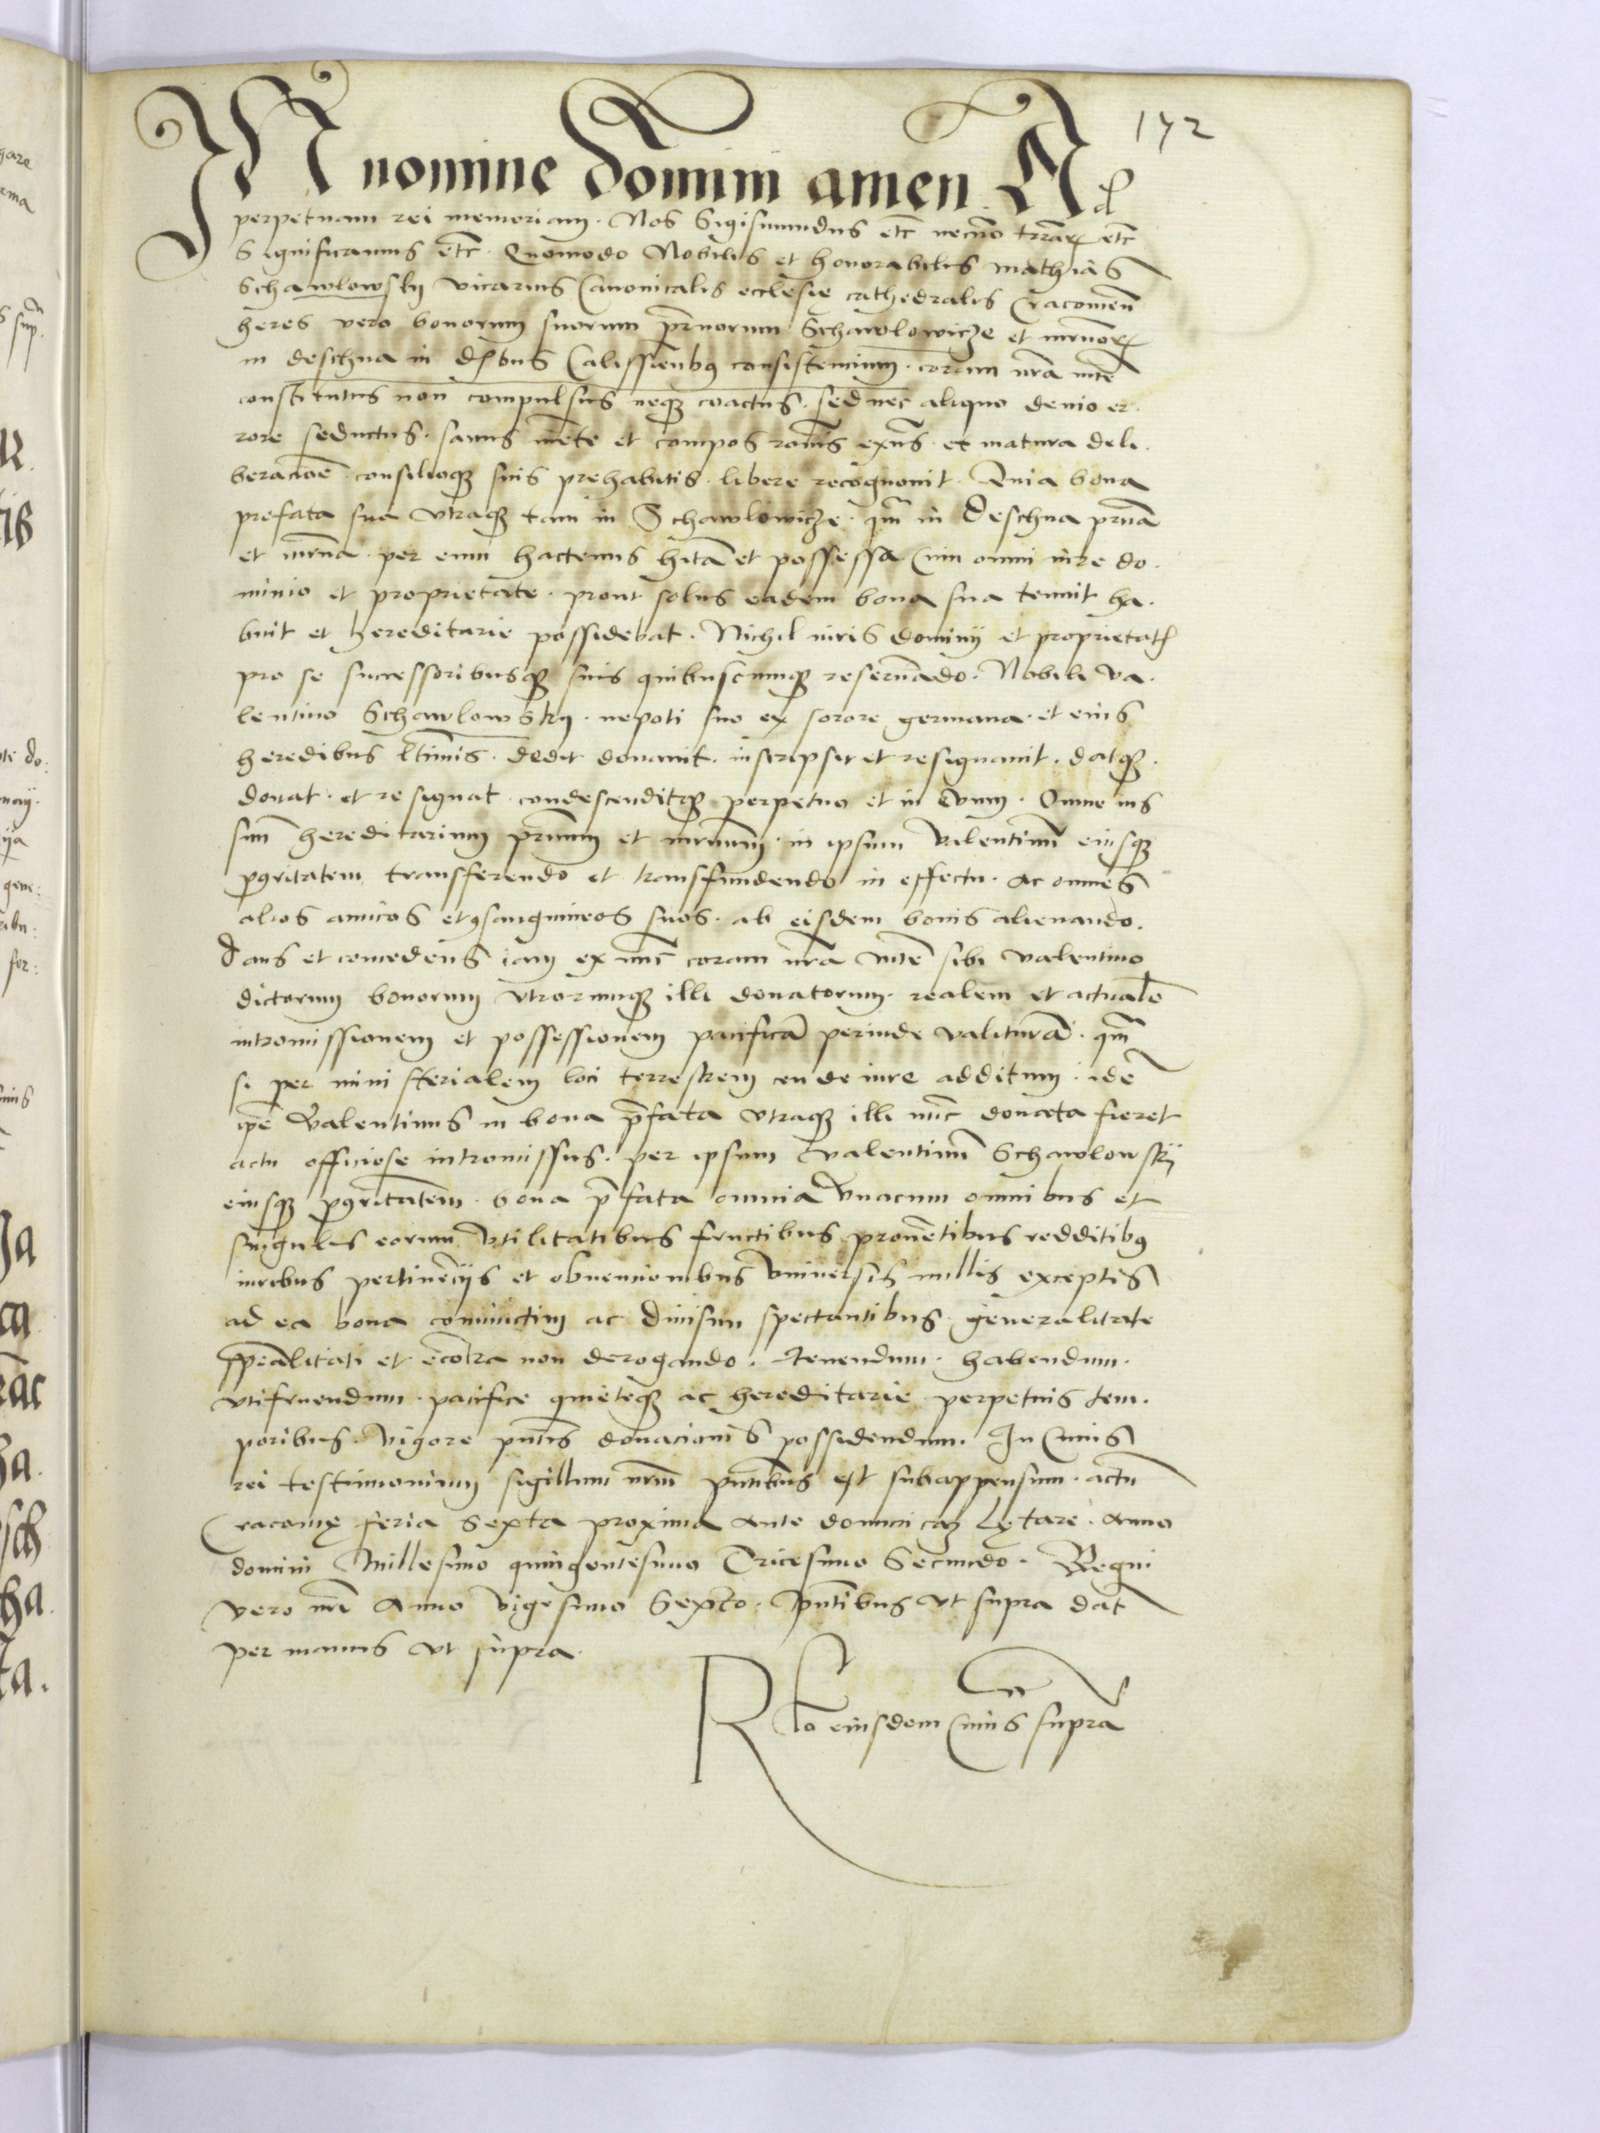 172
IN nomine Domini amen. Ad
perpetuam rei memoriam. Nos Sigismundus etc̃ necnõ trraꝝ etc̃
Significamus etc̃. Quomodo Nobilis et honorabilis mathias
Schawlowsky vicarius Canonicalis ecclesie cathedralis Cracouieñ
heres vero bonorum suorum pr̃norum Schawlowicze et mr̃noꝝ
in deschna in
consistencium. coram nr̃a mtẽ
constitutus non compulsus neqꝫ coactus. sed nec aliquo deuio er-
rore seductus. sanus mẽte et compos rõnis exñs. et matura deli-
beracioẽ consilioqꝫ suis prehabitis. libere recognouit. Quia bona
prefata sua vtraqꝫ tam in Schawlowicze. qm̃ in Deschna pr̃na
et mr̃na. per eum hactenus hita et possessa Cum omni iure do-
minio et proprietate. prout solus eadem bona sua tenuit ha-
buit et hereditarie possidebat. Nichil iuris dominij et proprietatꝭ
pro se successoribusqꝫ suis quibuscumqꝫ reseruãdo. Nobili va-
lentino Schawlowsky. nepoti suo ex sorore germana. et eius
heredibus ltimis. dedit donauit. inscripsit et resignauit. datqꝫ.
donat. et resignat. condescenditqꝫ perpetuo et in Euum. Omne ius
suũ hereditarium pr̃num et mr̃num. in ipsum Valentinũ eiusqꝫ
ꝓꝯritatem transferendo et transfundendo in effectu. ac omnes
alios amicos et ꝯsanguineos suos. ab eisdem bonis alienando.
Dans et concedens iam ex nũc coram nr̃a mtẽ sibi valentino
dictorum bonorum vtrorumqꝫ illi donatorum. realem et actualẽ
intromissionem et possessionem pacificã perinde valiturã. qm̃
si per ministerialem loci terrestrem ceu de iure additum. idẽ
ip̃e Valentinus in bona p̃fata vtraqꝫ illi nũc donata fieret
actu officiose intromissus. per ipsum Valentinũ Schawlowsky
eiusqꝫ ꝓꝯritatem. bona p̃fata omnia Vnacum omnibus et
singulis eorum vtilitatibus fructibus prouẽtibus redditibꝯ
iuribus pertinẽcijs et obuencionibus Vniuersis nullis exceptis
ad ea bona coniunctim ac diuisim spectantibus. generalitate
spẽalitati et ecõtra non derogando. tenendum. habendum.
vtifruendum. pacifice quieteqꝫ ac hereditarie perpetuis tem-
poribus. Vigore pñtis donacionis possidendum. In Cuius
rei testimonium sigillum nr̃m pñtibus est subappensum. actũ
Cracouię feria Sexta proxima ante dominicaꝫ Lętare. Anno
domini Millesimo quingentesimo Tricesimo Secundo. Regni
vero nr̃i Anno Vigesimo Sexto. Pñtibus vt supra dat̃
per manus vt supra.
Rlto eiusdem Cuius supra